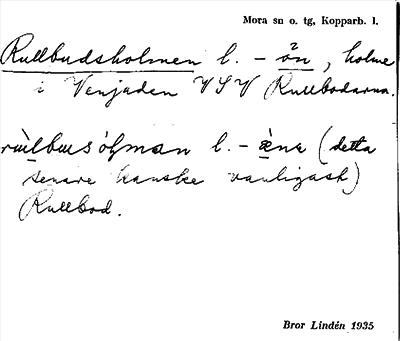 Mora sn o. tg, Kopparb. l.
Rullbudsholmen l. - ön, holme
i Venjaden VSV Rullbodarna.
rùlbusólman l. - àna (detta
senare kanske vanligast)
Rullbod.
Bror Lindén 1935